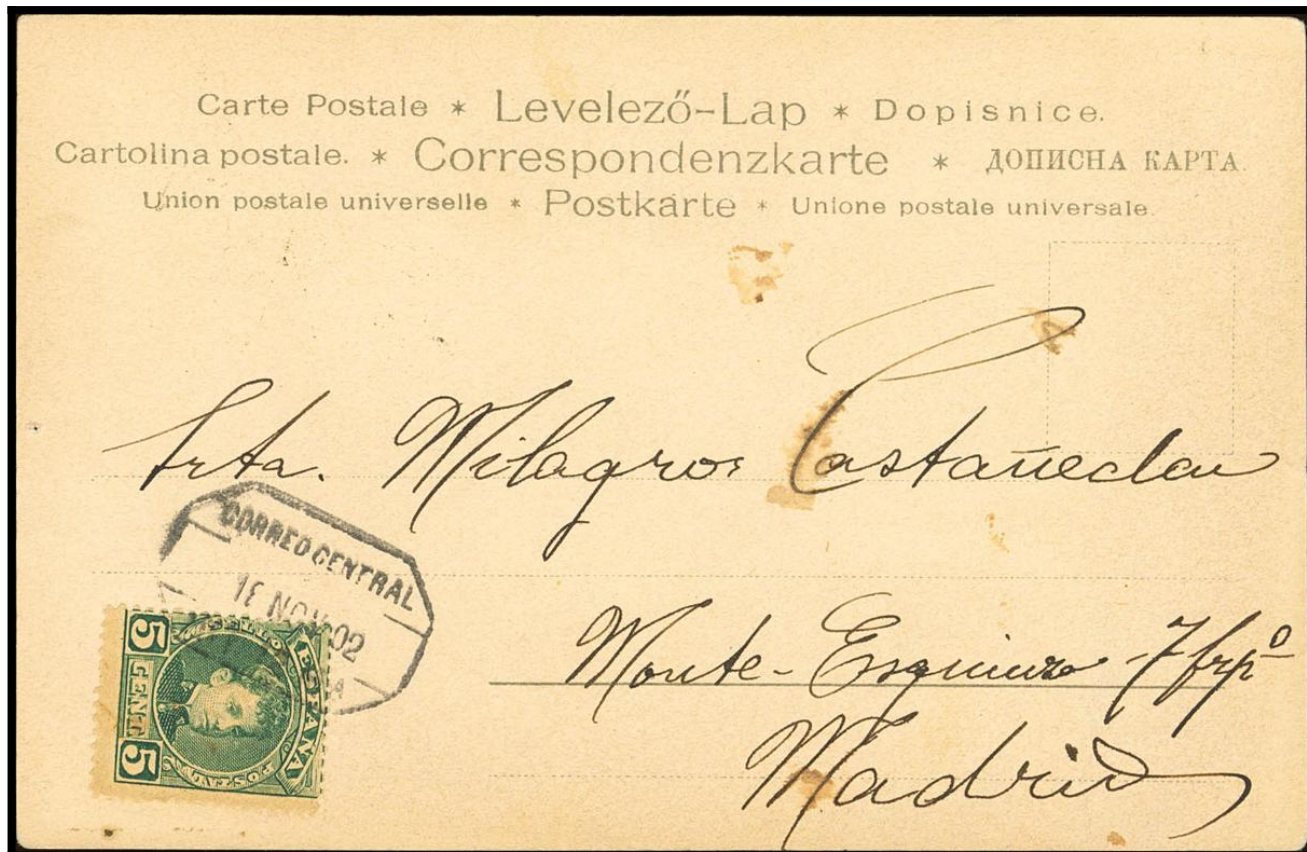 Carte Postale * Levelező-Lap * Dopisnice.
Cartolina postale. * Correspondenzkarte * ДОПИСНА КАРТА.
Union postale universelle * Postkarte * Unione postale universale.
Srta. Milagros Castañeda
CORREO CENTRAL
NOV 02
Monte-Esquinza 7
Madrid
5 CENT 5
SELLO POSTAL
ESPAÑA